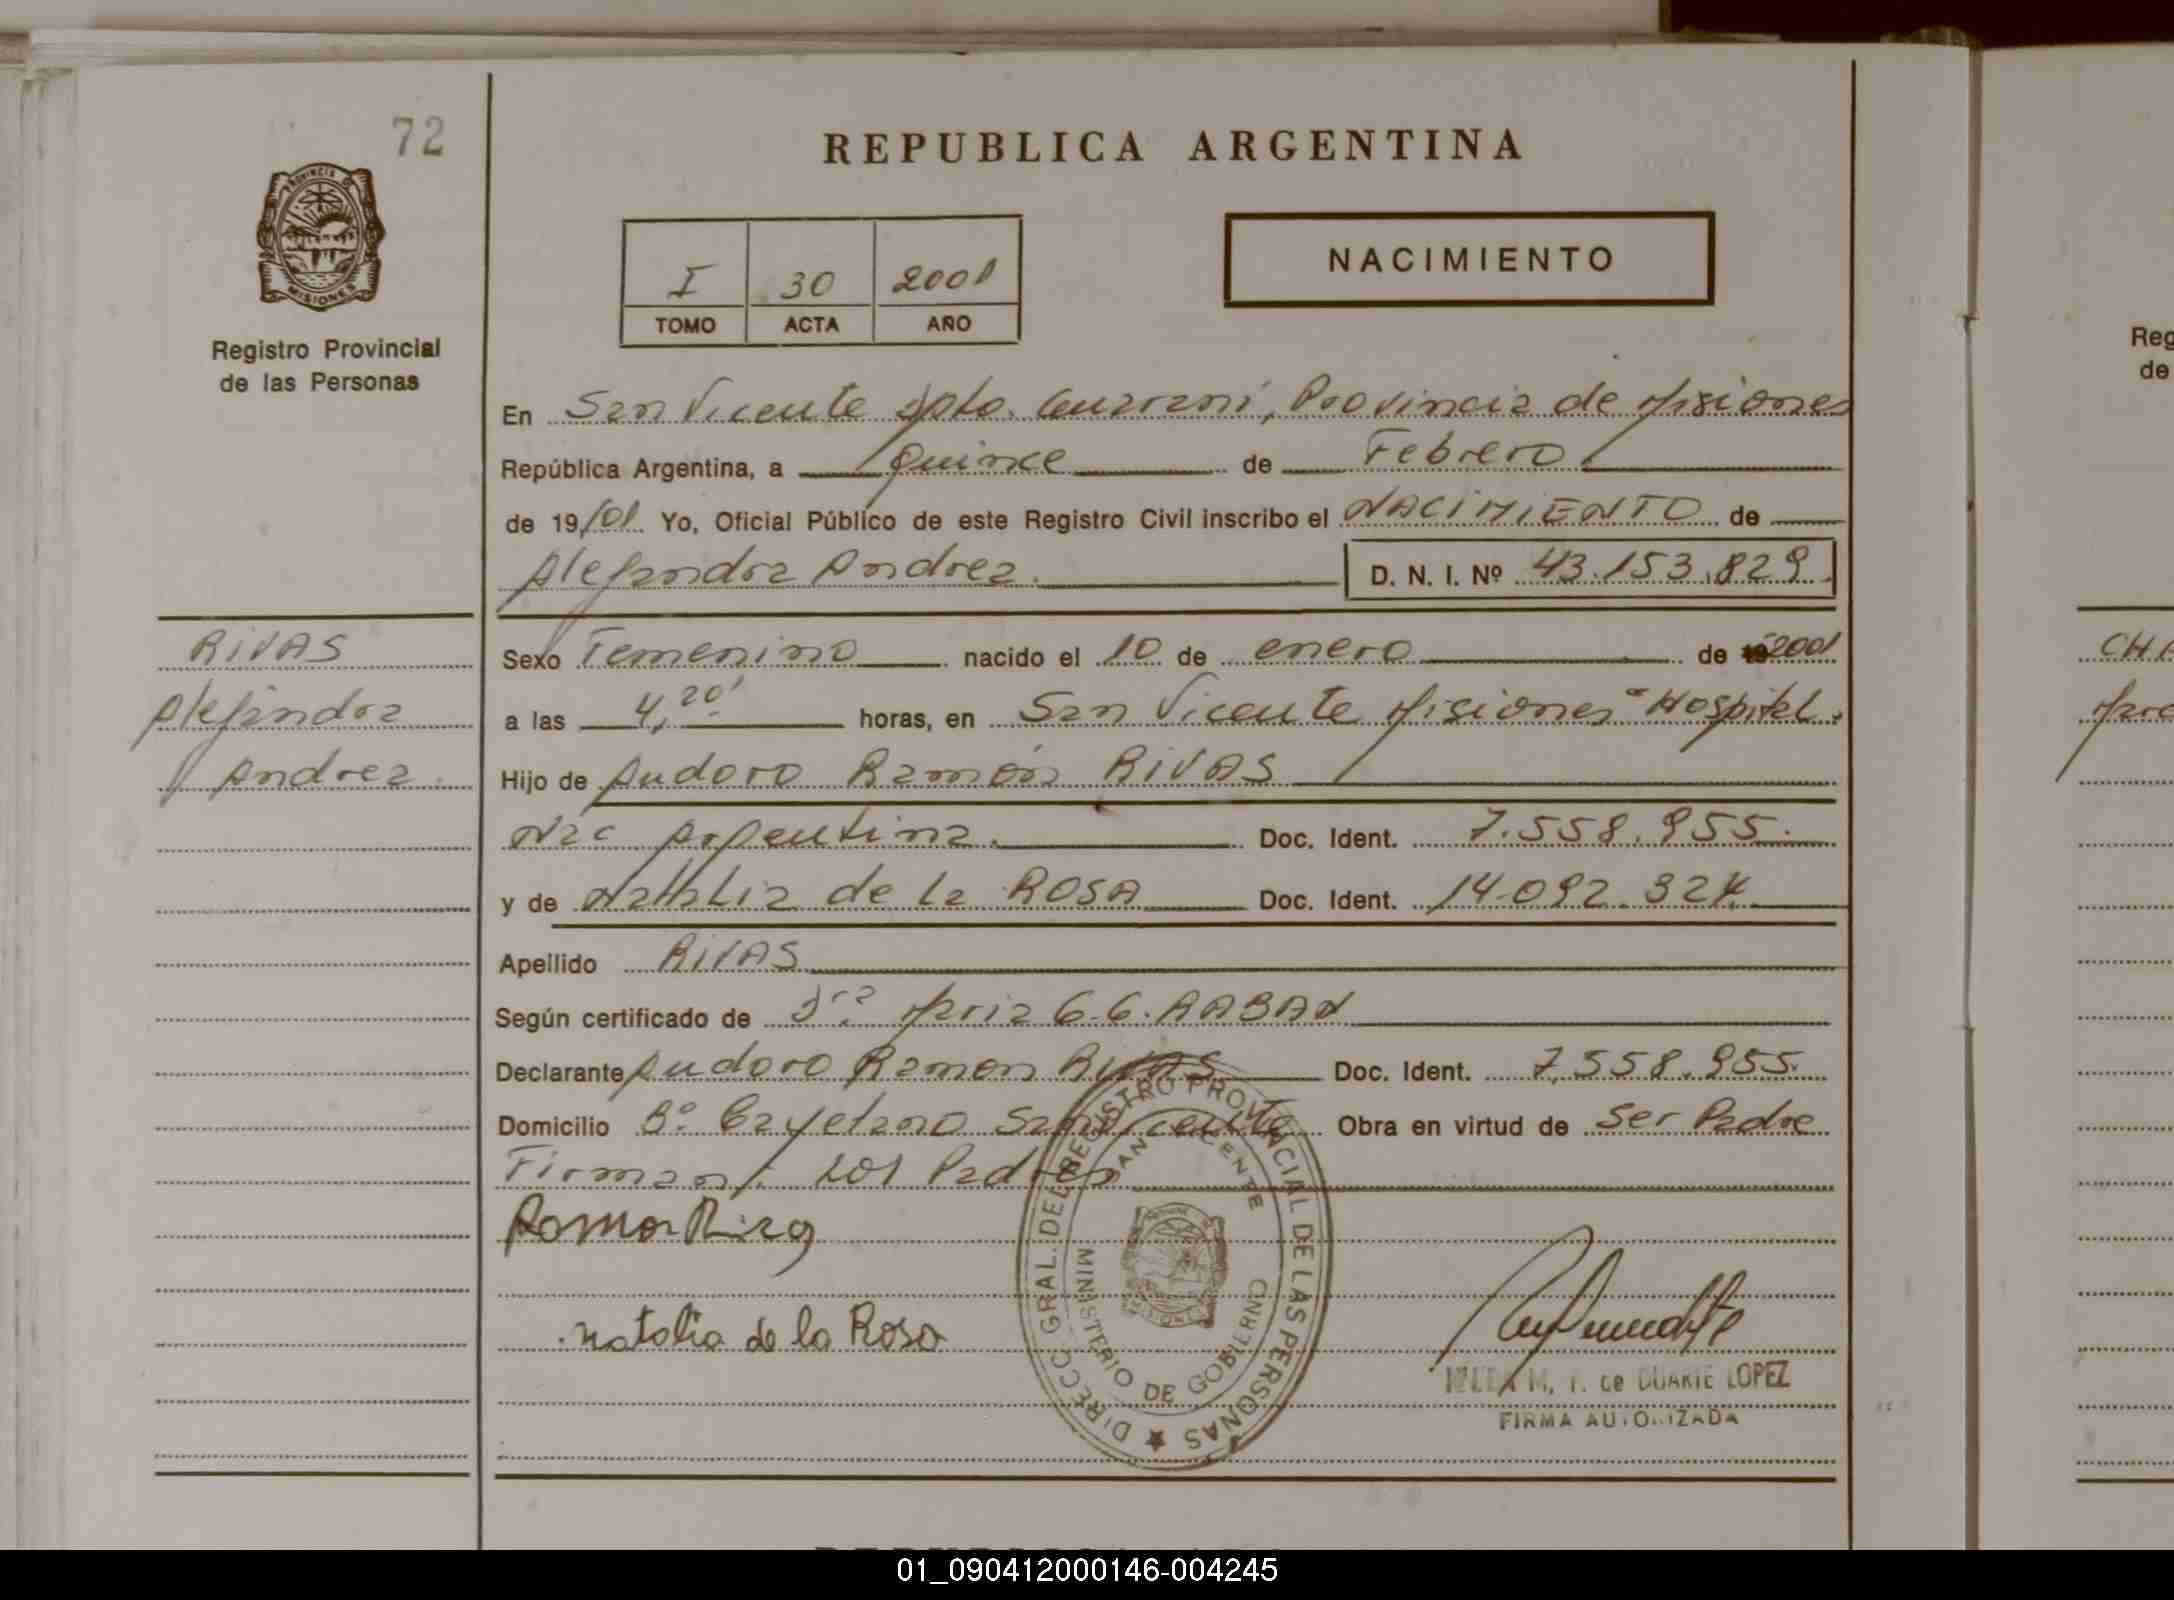 72
PROVINCIA DE
MISIONES
Registro Provincial
de las Personas
REPUBLICA ARGENTINA
I 30 2001
TOMO ACTA AÑO
NACIMIENTO
En San Vicente Dpto. Guaraní, Provincia de Misiones
República Argentina, a Quince de Febrero
de 19/01 Yo, Oficial Público de este Registro Civil inscribo el NACIMIENTO de
Alejandra Andrea. D. N. I. Nº 43.153.829
RIVAS
Alejandra
Andrea.
Sexo Femenino nacido el 10 de enero de 2001
a las 4,20' horas, en San Vicente Misiones "Hospital.
Hijo de Audoro Ramón RIVAS
Nac Argentina. Doc. Ident. 7.558.955.
y de Natalia de la ROSA Doc. Ident. 14.092.324.
Apellido RIVAS
Según certificado de Dra. María G.G. RABAN
Declarante Audoro Ramon RIVAS Doc. Ident. 7.558.955.
Domicilio Bº Cayetano San Vicente Obra en virtud de Ser Padre
Firman: Los Padres
Ramon Riva
natalia de la Rosa
DIRECC. GRAL. DEL REGISTRO PROVINCIAL DE LAS PERSONAS
SAN VICENTE
MINISTERIO DE GOBIERNO
M. T. de DUARTE LOPEZ
FIRMA AUTORIZADA
Reg
de
CHA
01_090412000146-004245